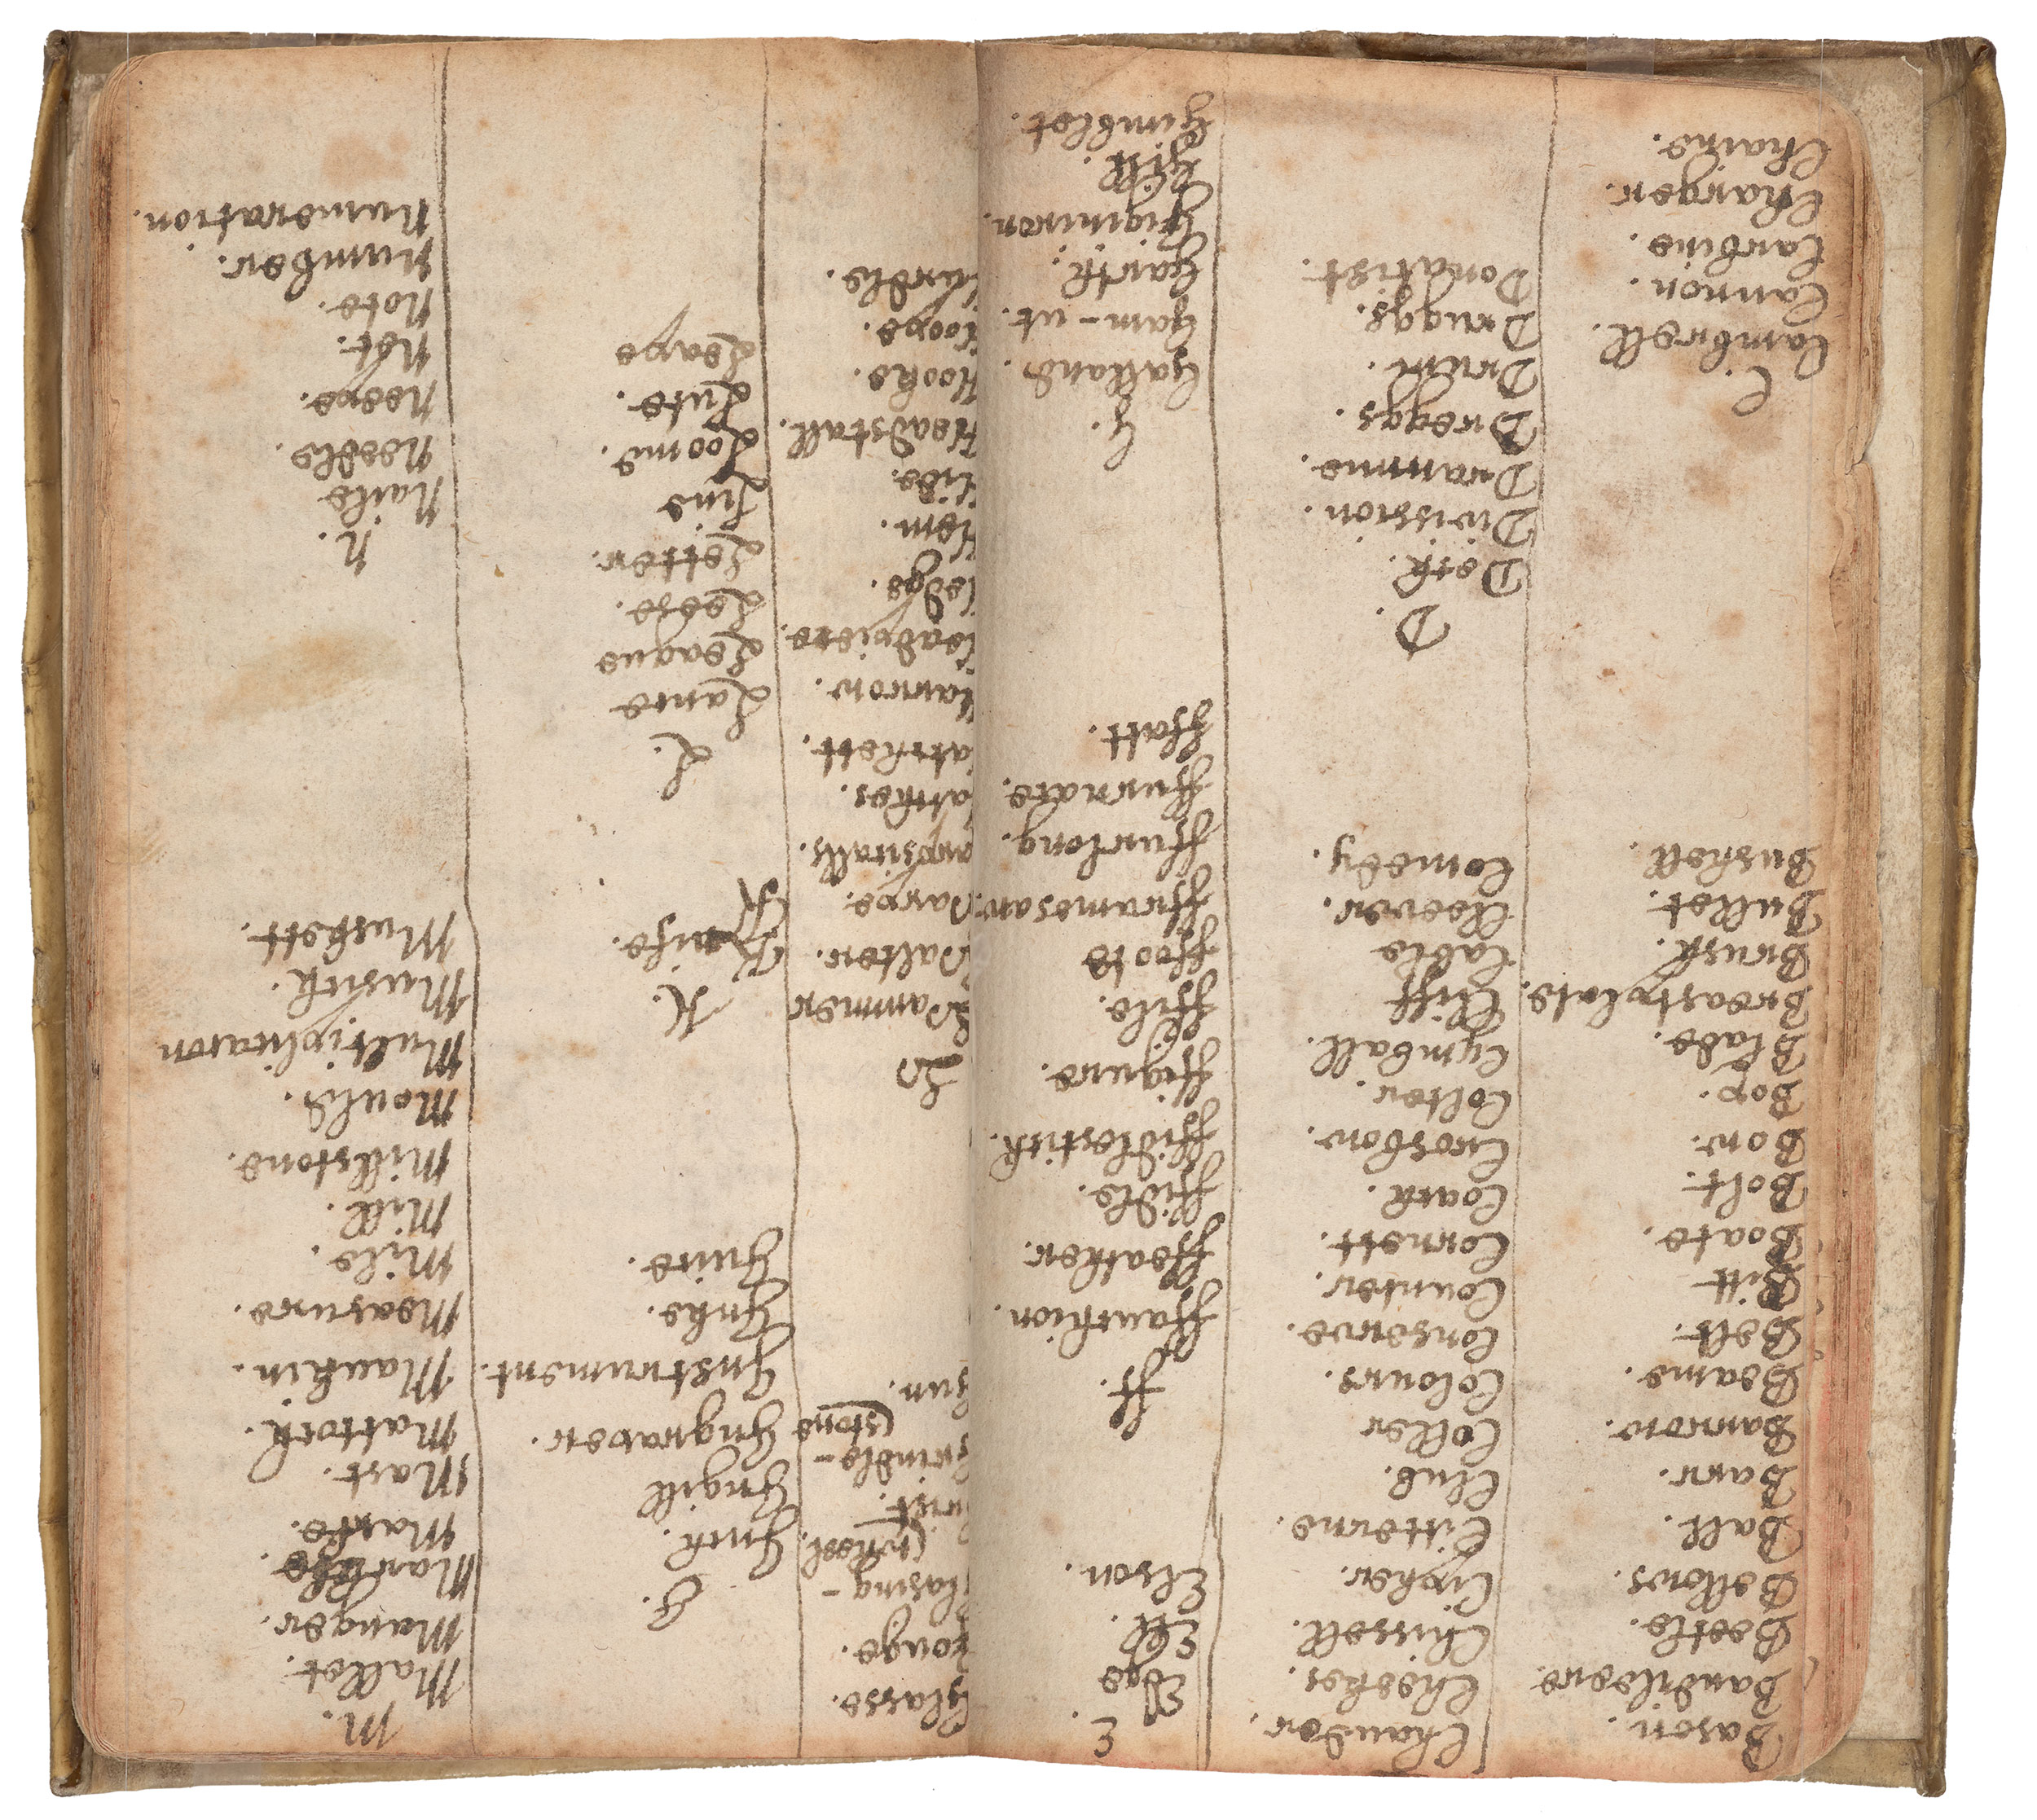 Bason.
Bandileere
Beetle.
Bellows.
Ball.
Barr.
Barrow.
Beame.
Belt.
Bitt
Boate.
Bolt.
Bow.
Bop.
Blade.
Breastplate.
Brush.
Bullet.
Bushell.
C.
Cambrell.
Cannon.
Carbine.
Charger.
Chaine.
Chauder.
Cheekes.
Chissell.
Cipher.
Citterne.
Club.
Coller
Colours.
Conserve.
Counter.
Cornett.
Coach.
Crosbow.
Colter.
Cymball.
Cliff
Cable
Cleever.
Comedy.
D.
Division.
Dramme.
Dreggs.
Drum.
Druggs.
Donatist.
E.
Edge
Ell.
Elson.
ff.
ffauchion.
ffeather.
ffidle.
ffidlestick.
ffigure.
ffile.
ffoote
fframesaw.
ffurlong.
ffurnace.
ffatt.
G.
Galland.
Gam-ut.
Garth.
Gigniron.
Gill.
Gimblet.
Glasse.
Gouge.
Glasing-
(wheel.
Grist.
Grindle-
(stone
Gun.
H
Hammer
Halter.
Harpe.
Harpsicalls.
Hatches.
Hatchett.
Harrow.
Headpiece.
Hedge.
Hem.
Hide.
Headstall.
Hooke.
Hoope.
Hurdle.
I.
Inch.
Ingill
Ingraver.
Instrument.
Inke.
Iuice.
K.
Knife.
K
L.
Lance
League
Leese.
Letter.
Line
Loome.
Lute.
Leape
M.
Mallet.
Manger.
Marble.
Marke.
Mast.
Mattock.
Maukin.
Measure.
Mile.
Mill.
Millstone.
Mould.
Multiplication
Musick.
Muskett.
N.
Naile
Needle.
Neepe.
Net.
Note.
Number.
Numeration.